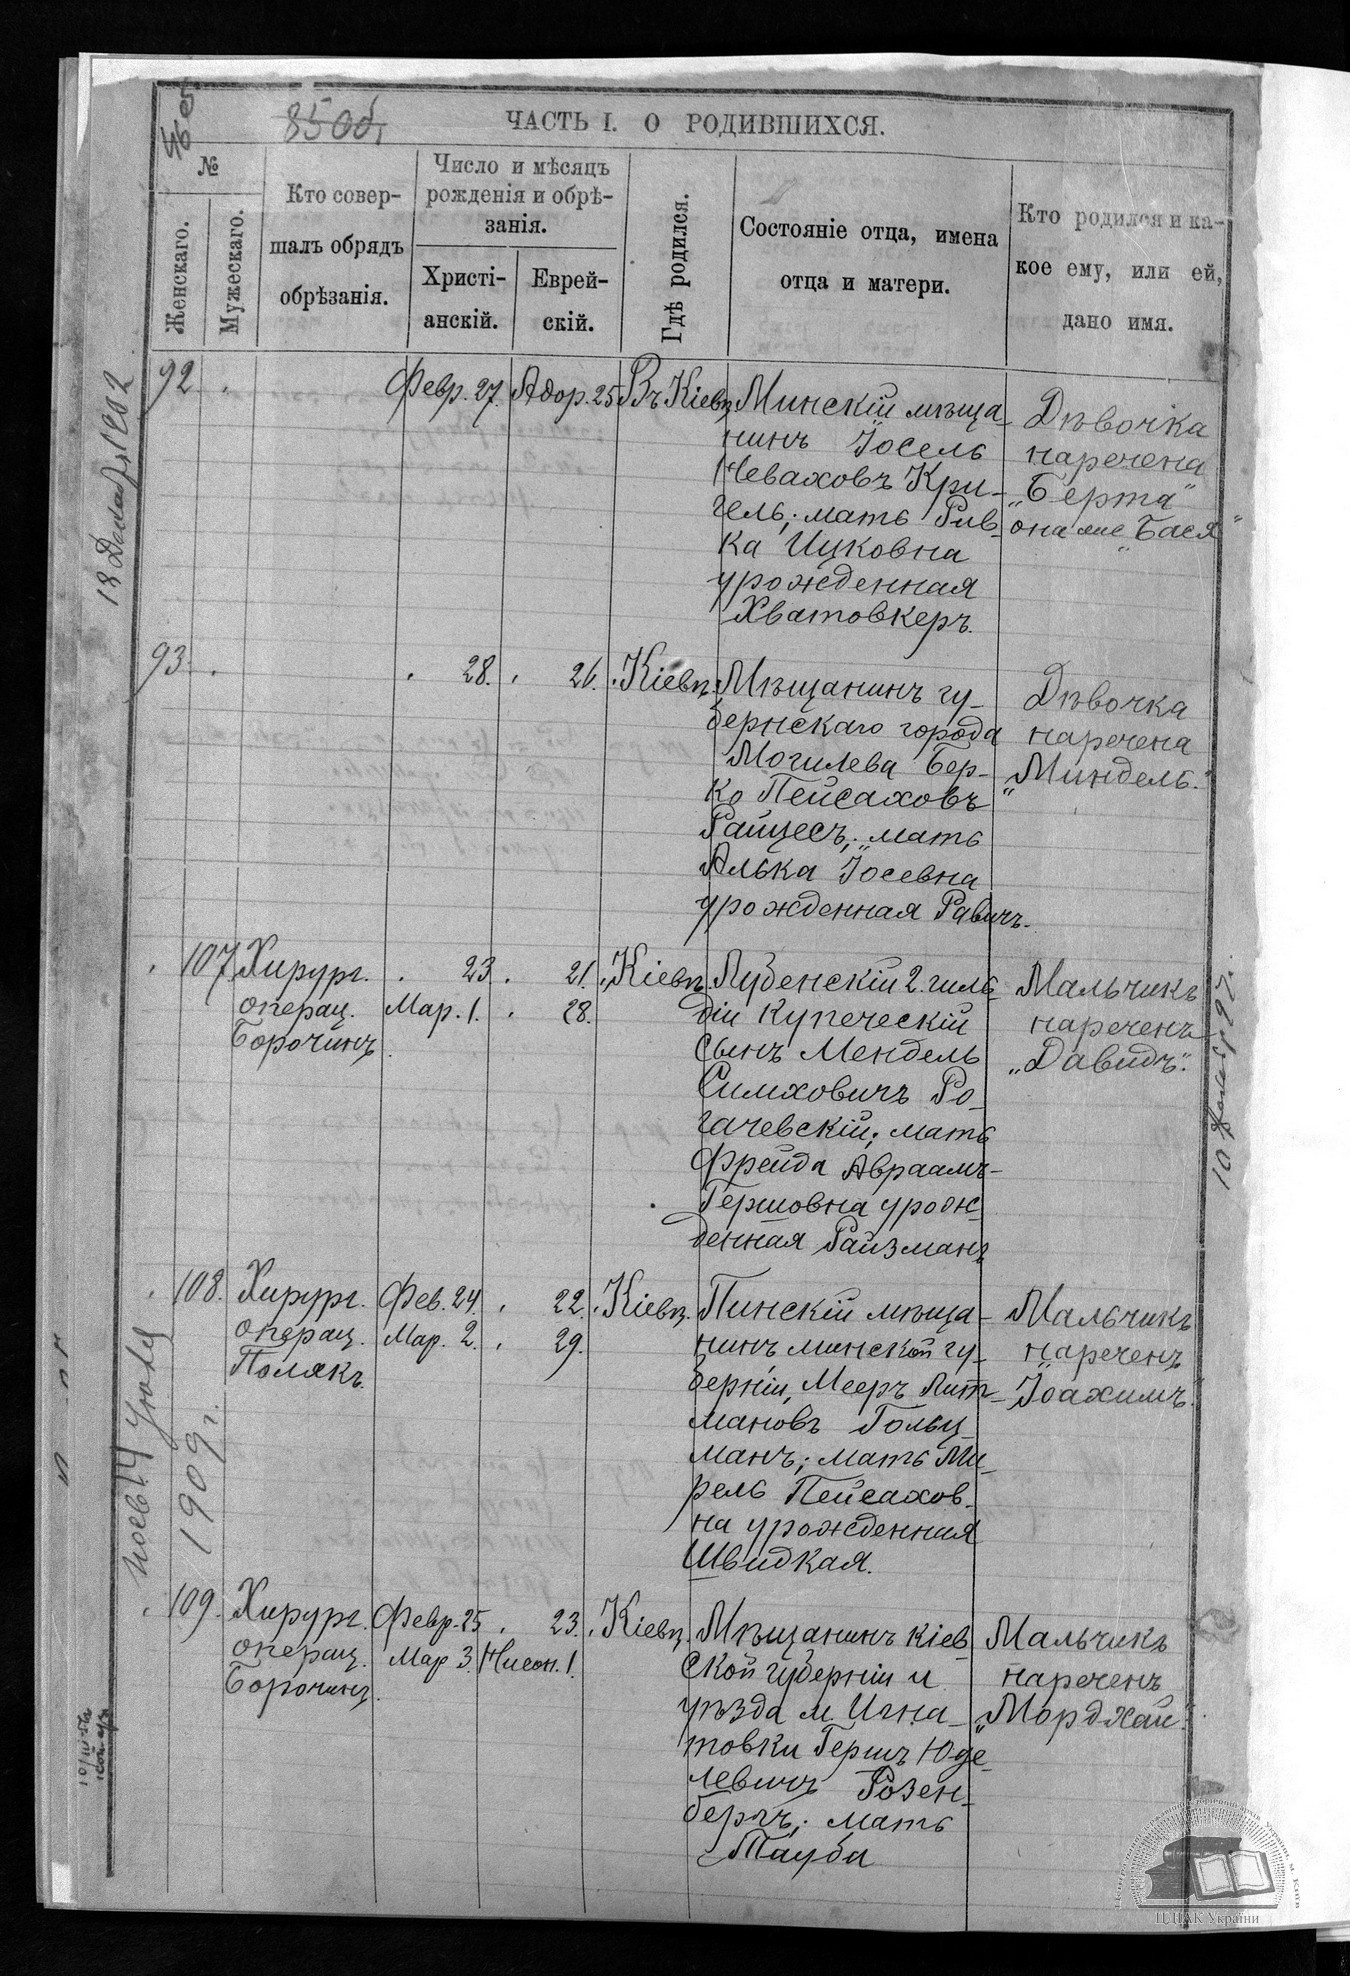 85 об.
ЧАСТЬ I. О РОДИВШИХСЯ.
№
Женскаго.
Мужескаго.
Кто совер-
шалъ обрядъ
обрѣзанія.
Число и мѣсяцъ
рожденія и обрѣ-
занія.
Христі-
анскій.
Еврей-
скій.
Гдѣ родился.
Состояніе отца, имена
отца и матери.
Кто родился и ка-
кое ему, или ей,
дано имя.
92.
Февр. 27.
Адор. 25
Въ Кіевѣ
Минскій мѣща-
нинъ Іосель
Неваховъ Кри-
гель; мать Рив-
ка Ицковна
урожденная
Хватовкеръ.
Дѣвочка
наречена
„Берта“
она же „Бася“
93.
28.
26.
Кіевѣ.
Мѣщанинъ гу-
бернскаго города
Могилева Бер-
ко Пейсаховъ
Райцесъ; мать
Алька Іосевна
урожденная Равичъ.
Дѣвочка
наречена
„Миндель“.
107.
Хирург.
операц.
Борочинъ.
23.
Мар. 1.
21.
28.
Кіевѣ.
Лубенскій 2. гиль-
діи купеческій
сынъ Мендель
Симховичъ Ро-
гачевскій; мать
Фрейда Авраамъ-
Гершовна урож-
денная Райзманъ
Мальчикъ
нареченъ
„Давидъ“.
108.
Хирург.
операц.
Полякъ.
Фев. 24.
Мар. 2.
22.
29.
Кіевѣ.
Пинскій мѣща-
нинъ минской гу-
берніи, Мееръ Лит-
мановъ Гольц-
манъ; мать Ми-
рель Пейсахов-
на урожденная
Швидкая.
Мальчикъ
нареченъ
„Іоахимъ“.
109.
Хирург.
операц.
Борочинъ.
Февр. 25
Мар 3.
23.
Нисон. 1.
Кіевѣ.
Мѣщанинъ Кіев
ской губерніи и
уѣзда м. Игна-
товки Гершъ Юде-
левичъ Розен-
бергъ; мать
Тауба
Мальчикъ
нареченъ
„Мордхай“.
1909 г.
ЦДІАК України